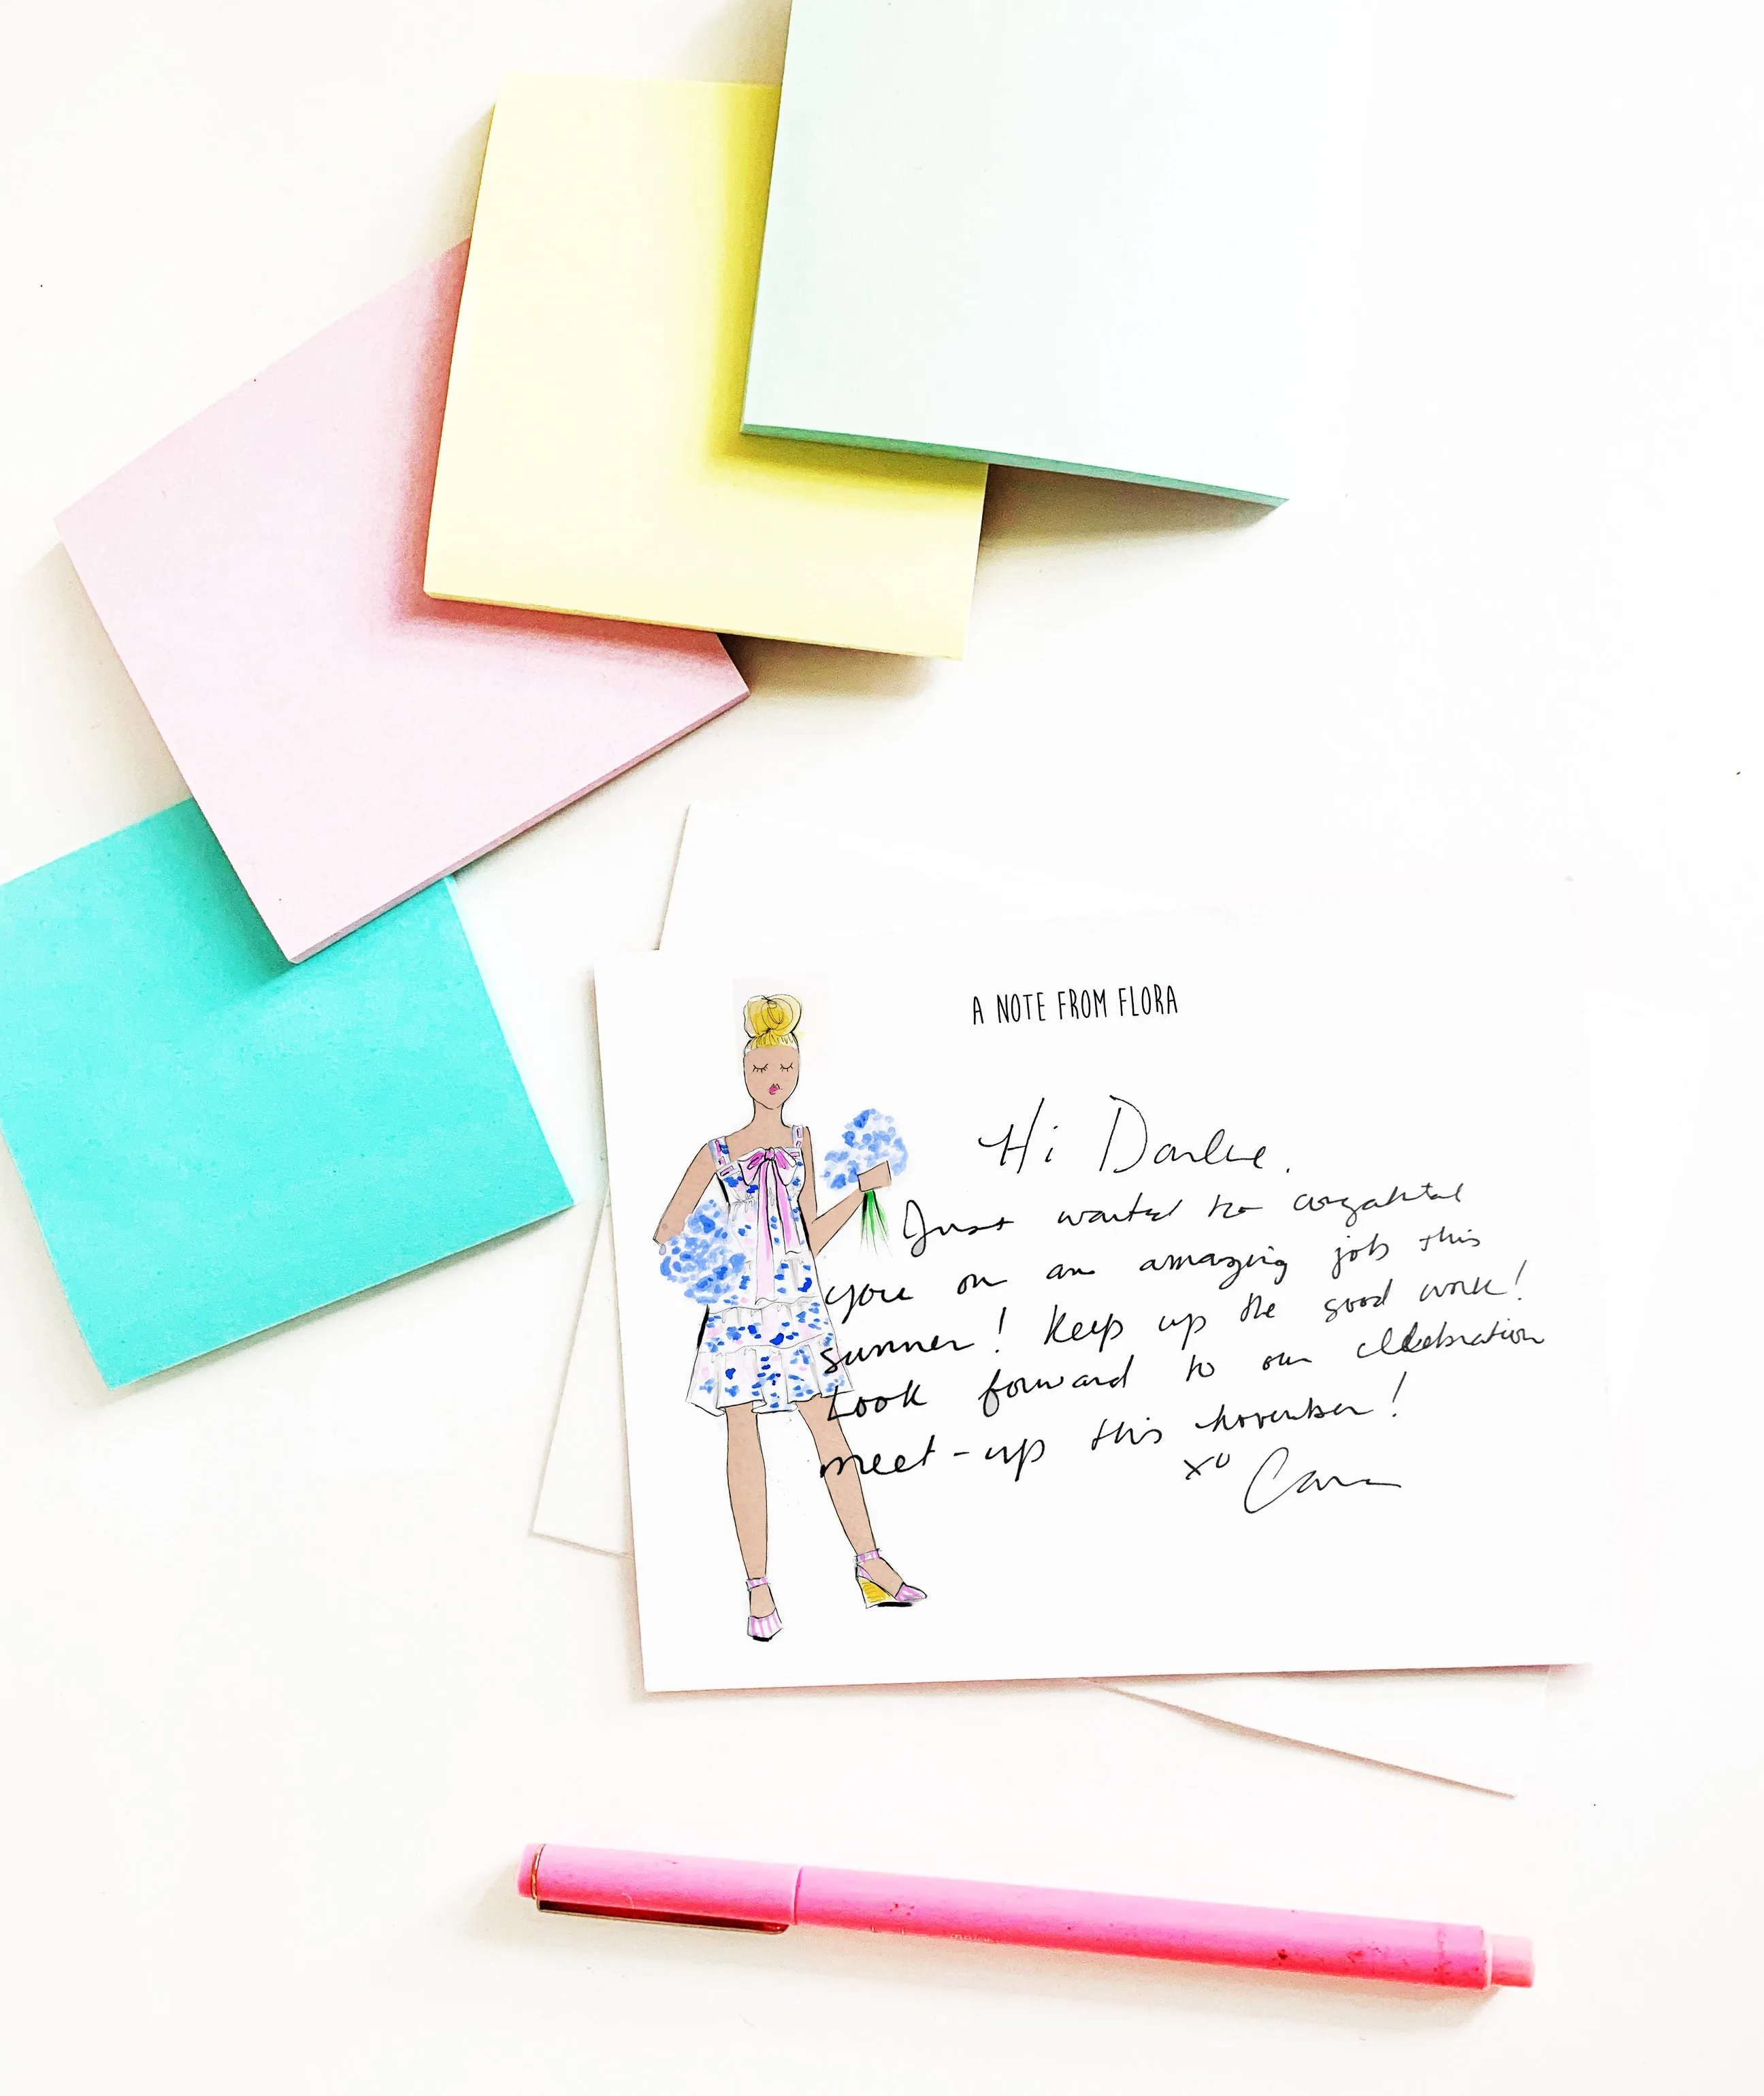 A NOTE FROM FLORA
Hi Darlene.
Just wanted to
you on an amazing job this
summer! Keep up the good work!
Look forward to our celebration
meet-up this november!
xo Cara